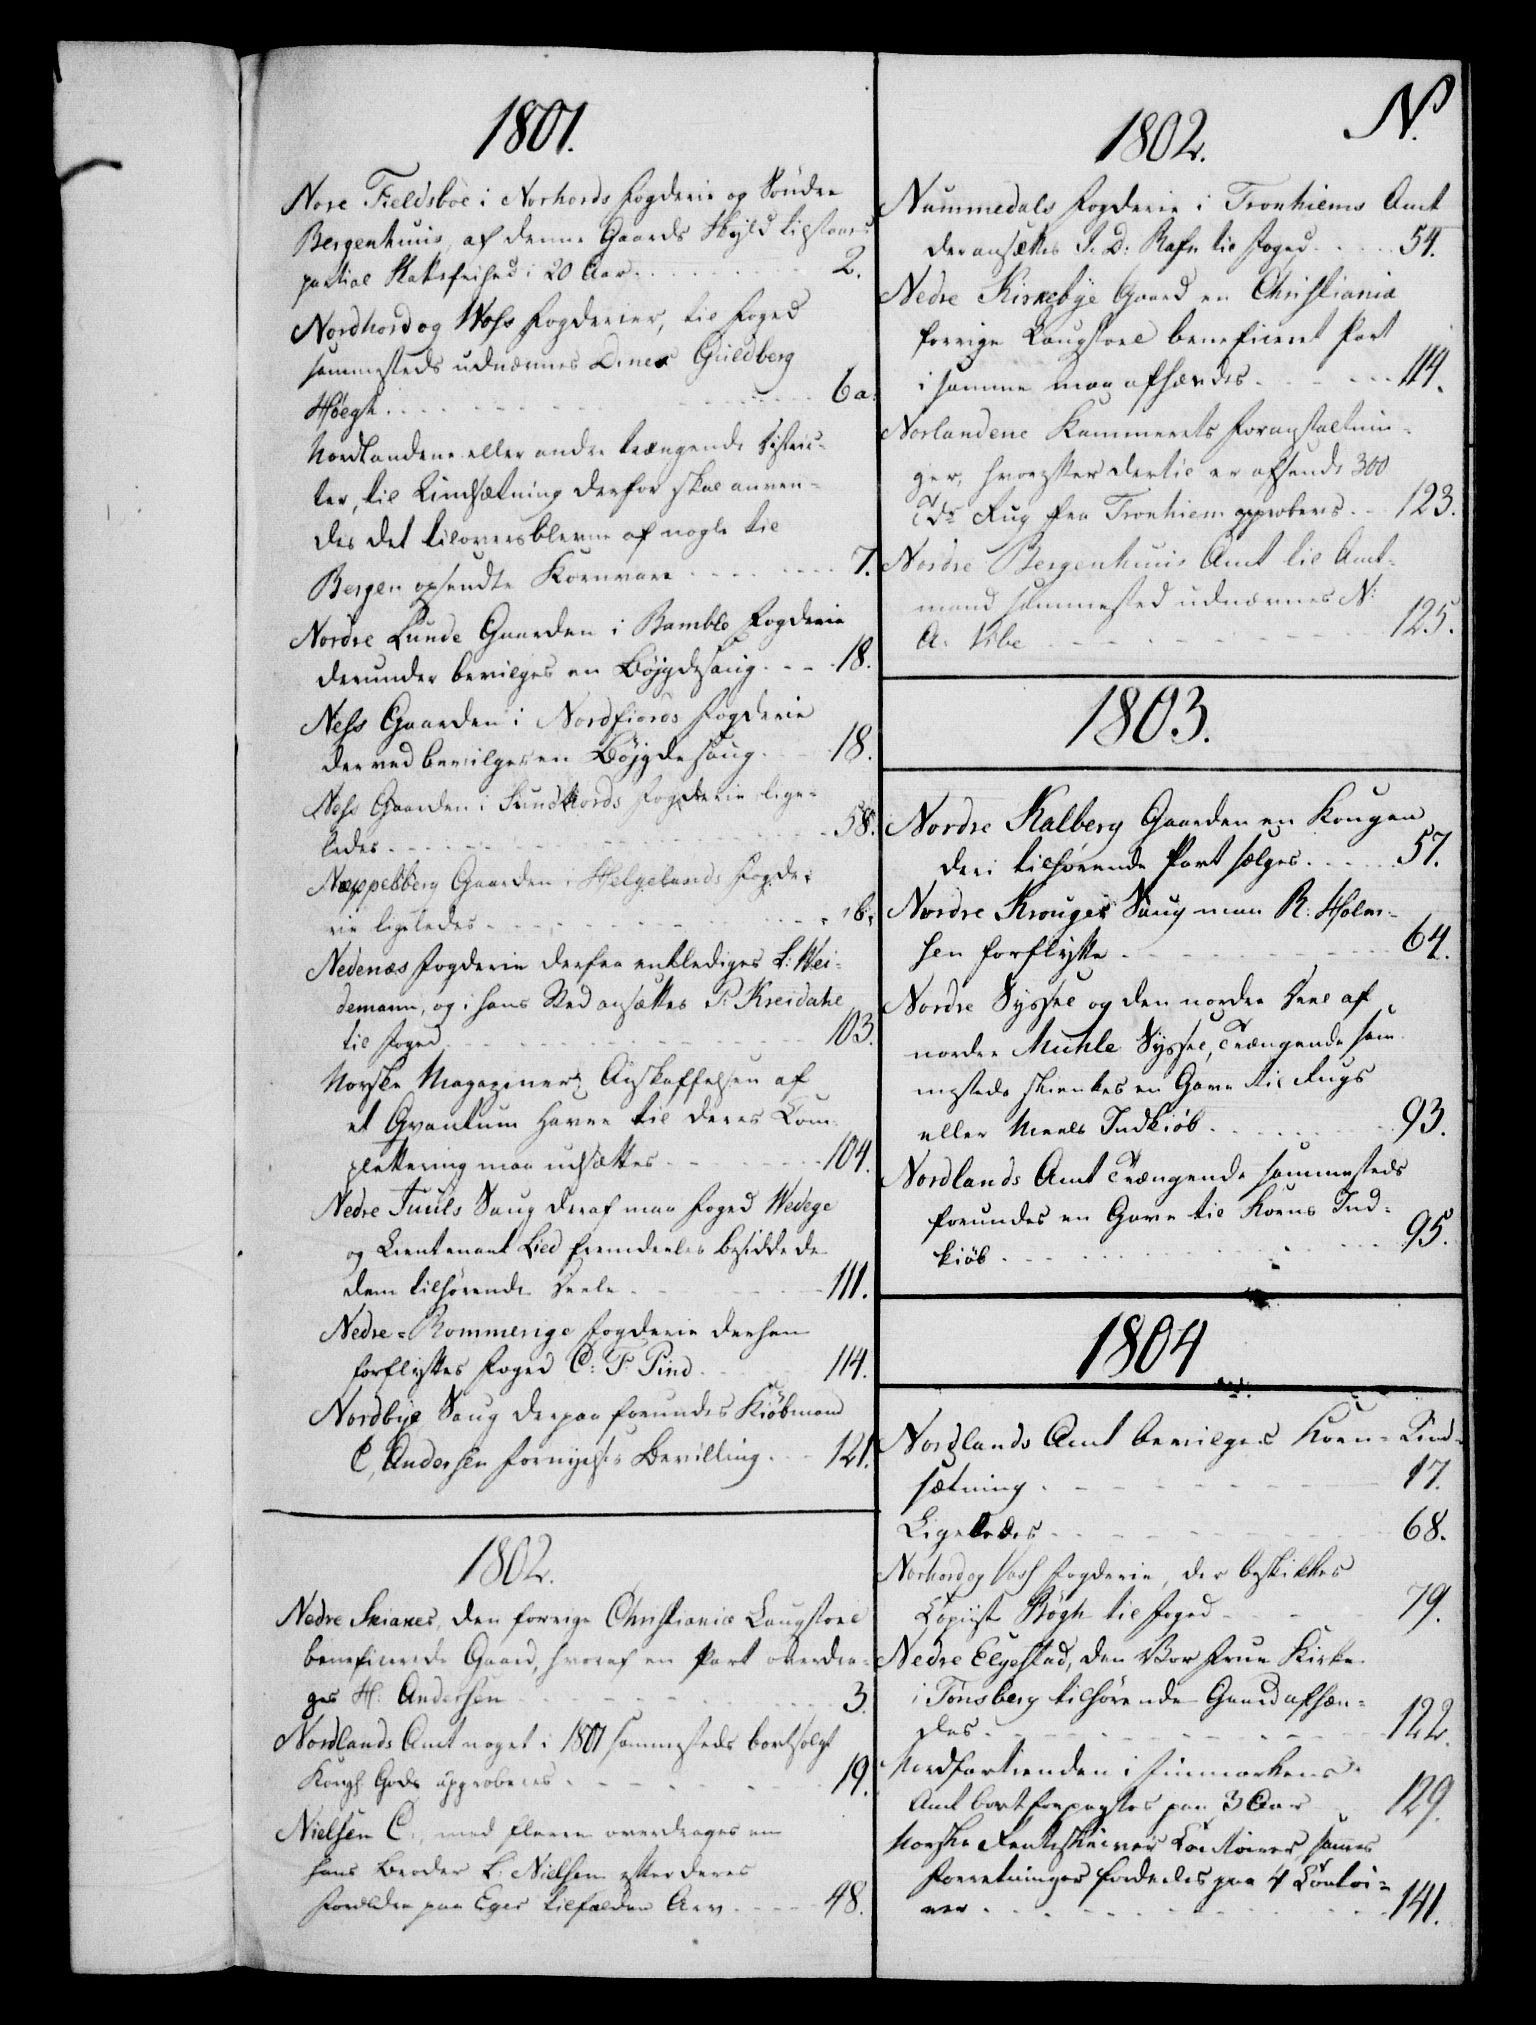 N.
1801.
Nore Fieldsboe i Norhords Fogderie og Söndre
Bergenhuus, af denne Gaards Skyld tilstaaes
partial Skatefrihed i 20 Aar 2.
Nordhord og Woss Fogderier, til Foged
sammesteds udnævnes Diner Guldberg
Høegh 6a.
Nordlandene eller andre trængende Distric-
ter, til Undsætning derfor skal anven-
des det tiloversblevne af nogle til
Bergen opsendte Kornvare 7.
Nordre Lunde Gaarden i Bamble Fogderie
derunder bevilges en Böjgdesaug 18.
Ness Gaarden i Nordfiords Fogderie
derved bevilges en Böjgdesaug 18.
Ness Gaarden i Sundhords Fogderie lige-
ledes 58.
Næppelberg Gaarden i Helgelands Fogde-
rie ligeledes ib.
Nedenæs Fogderie derfra entlediges L: Wei-
demann, og i hans Sted ansættes P. Kreidahl
til Foged 103.
Norske Magaziner, Anskaffelsen af
et Qvantum Havre til deres Com-
plettering maa udsættes 104.
Nedre Juuls Saug deraf maa Foged Wedege
og Lieutenant Lied fremdeeles besidde de
dem tilhørende Deele 111.
Nedre-Rommerige Fogderie derhen
forflyttes Foged C: F. Pind 114.
Nordbye Saug derpaa forundes Kiöbmand
C, Andersen fornyet Bevilling 121.
1802.
Nedre Skianes, den forrige Christiania Laugstoel
beneficerede Gaard, hvoraf en Part overdra-
ges H: Andersen 3.
Nordlands Amt noget i 1801 sammesteds bortsolgt
Kongl. Gods approberes 19.
Nielsen C., med flere overdrages en
hans Broder L: Nielsen efter deres
Forældre paa Eger tilfalden Arv 48.
1802.
Nummedals Fogderie i Tronhiems Amt
der ansættes J. D: Rafn til Foged 54.
Nedre Kirkebye Gaard en Christiania
forrige Laugstoel beneficeret Part
i samme maa afhændes 114.
Norlandene Kammerets Foranstaltnin-
ger, hvorefter dertil er afsendt 300
Tdr Rug fra Tronhiem approberes 123.
Nordre Bergenhuus Amt til Amt-
mand sammested udnævnes N:
A. Vibe 125.
1803.
Nordre Kalberg Gaarden en Kongen
deri tilhørende Part sælges 57.
Nordre Krouges Saug maa R: Holm-
sen forflytte 64.
Nordre Syssel og den nordre Deel af
nordre Muhle Syssel, Trængende sam-
mesteds skienkes en Gave til Rugs
eller Meels Indkiöb 93.
Nordlands Amt Trængende sammesteds
forundes en Gave til Korns Ind-
kiöb 95.
1804
Nordlands Amt bevilges Korn-Und-
sætning 17.
Ligeledes 68.
Norhord og Voss Fogderie, der beskikkes
Copiist Bögh til Foged 79.
Nedre Elgestad, den Vor Frue Kirke
i Tönsberg tilhörende Gaard afhæn-
des 122.
Nordfartienden i Finmarkens
Amt bortforpagtes paa 3 Aar 129.
Norske Renteskriver Contoirer, sammes
Forretninger fordeeles paa 4 Contoi-
rer 141.